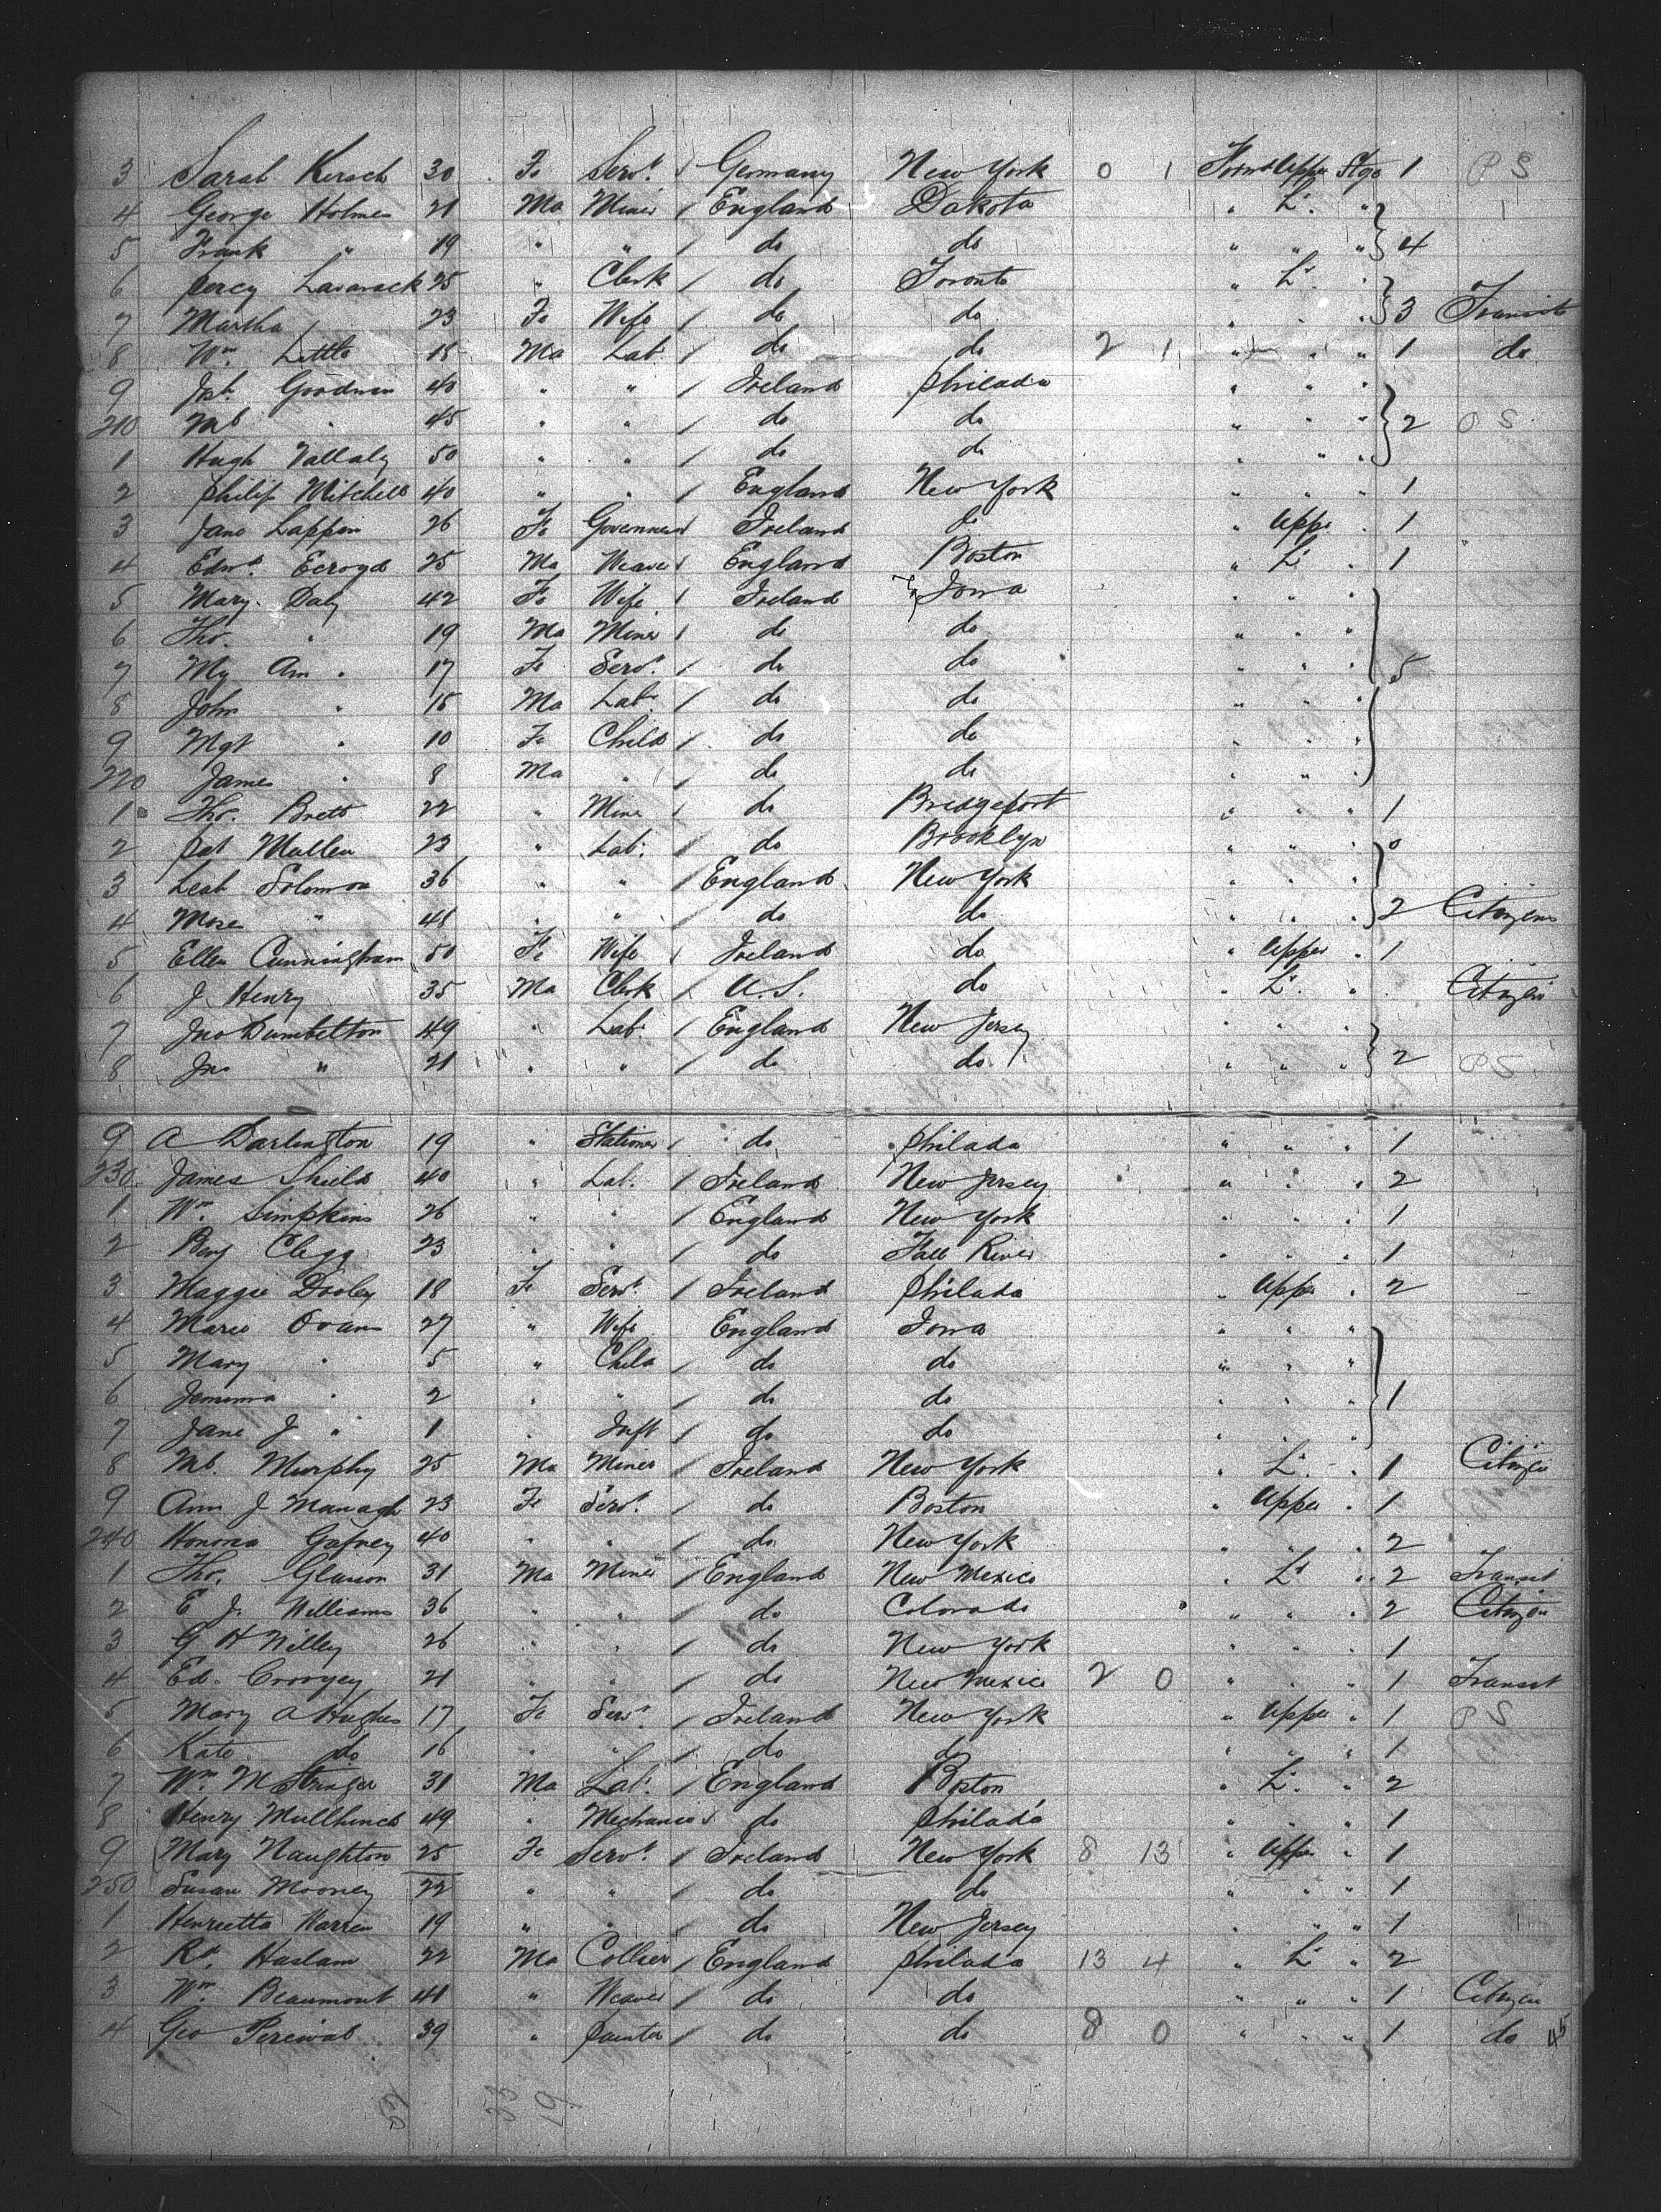 3 Sarah Kersch 30 Fe Servt / Germany New York 0 1 Forwd Upper Stge 1 P S
4 George Holmes 21 Ma Miner / England Dakota " Lr "
5 Frank " 19 " " / do do " " " 4
6 Percy Lavarack 25 " Clerk / do Toronto " Lr "
7 Martha / 23 Fe Wife / do do " " " 3 Transit
8 Wm Little 18 Ma Labr / do do 2 1 " " " 1 do
9 Goodman 40 " " Ireland Philada " " "
210 " 45 " " / do do " " " 2 O S
1 Hugh 50 " " / do do " " "
2 Philip Mitchell 40 " " / England New York " " " 1
3 Jane Lappin 26 Fe Governess Ireland do " Upper " 1
4 Edwd Ecroyd 25 Ma Weaver / England Boston " Lr " 1
5 Mary Daly 42 Fe Wife / Ireland Iowa " " "
6 Tho. " 19 Ma Miner / do do " " "
7 My Ann " 17 Fe Servt / do do " " " 5
8 John " 15 Ma Labr / do do " " "
9 Mgt " 10 Fe Child / do do " " "
220 James " 8 Ma " / do do " " "
1 Tho. Brett 22 " Miner / do Bridgeport " " " 1
2 Pat Mullen 23 " Labr / do Brooklyn " " " 0
3 Leah Solomon 36 " " / England New York " " "
4 Mose " 48 " " / do do " " " 2 Citizens
5 Ellen Cunningham 50 Fe Wife / Ireland do " Upper " 1
6 J Henry 35 Ma Clerk / U.S. do " Lr " Citizen
7 Jno Dumbelton 49 " Labr / England New Jersey " " "
8 Jno " 21 " " / do do " " " 2 P S
9 A Darlington 19 " Stationer / do Philada " " " 1
230 James Shield 40 " Labr / Ireland New Jersey " " " 2
1 Wm Simpkins 26 " " / England New York " " " 1
2 Benj Clegg 23 " " / do Fall River " " " 1
3 Maggie Dooley 18 Fe Servt / Ireland Philada " Upper " 2
4 Marie 27 " Wife England Iowa " " "
5 Mary " 5 " Child / do do " " "
6 Jemima " 2 " " / do do " " " 1
7 Jane J " 1 " Inft / do do " " "
8 Ml. Murphy 25 Ma Miner / Ireland New York " Lr " 1 Citizen
9 Ann J Managh 23 Fe Servt / do Boston " Upper " 1
240 Honora Gafney 40 " " / do New York " " " 2
1 Tho. 31 Ma Miner / England New Mexico " Lr " 2 Transit
2 E J. Williams 36 " " / do Colorado " " " 2 Citizen
3 G H Willey 26 " " / do New York " " " 1
4 Ed. 21 " " / do New Mexico 2 0 " " " 1 Transit
5 Mary A Hughes 17 Fe Servt / Ireland New York " Upper " 1 P S
6 Kate do 16 " " / do do " " " 1
7 Wm M Stringer 31 Ma Labr / England Boston " Lr " 2
8 Henry 49 " Mechanic / do Philada " " " 1
9 Mary Naughton 25 Fe Servt / Ireland New York 8 13 " Upper " 1
250 Susan Mooney 22 " " / do do " " " 1
1 Henrietta Warren 19 " " / do New Jersey " " " 1
2 Rt. Haslam 22 Ma Collier / England Philada 13 4 " Lr " 2
3 Wm Beaumont 41 " Weaver / do do " " " 1 Citizen
4 Geo Percival 39 " Painter / do do 8 0 " " " 1 do 45